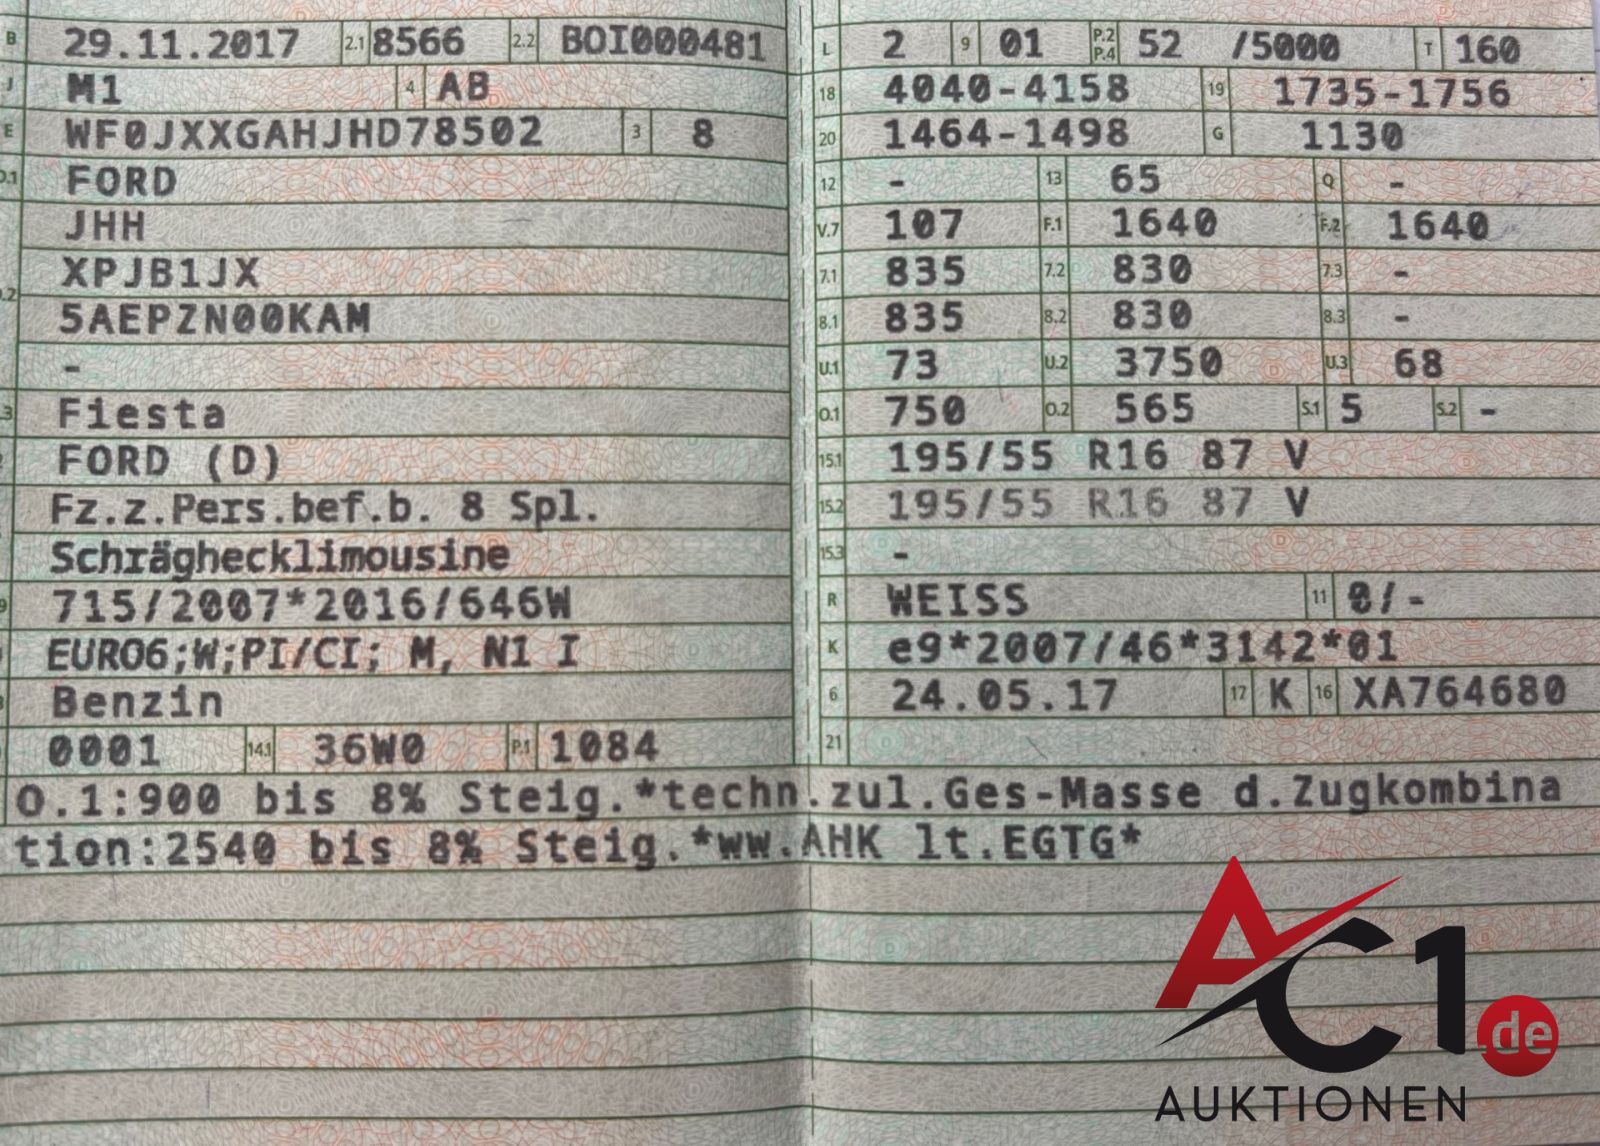 B 29.11.2017 2.1 8566 2.2 BOI000481
J M1 4 AB
E WF0JXXGAHJHD78502 3 8
D.1 FORD
JHH
XPJB1JX
.2 5AEPZN00KAM
-
.3 Fiesta
2 FORD (D)
Fz.z.Pers.bef.b. 8 Spl.
Schräghecklimousine
9 715/2007*2016/646W
EURO6;W;PI/CI; M, N1 I
3 Benzin
0001 14.1 36W0 P.1 1084
L 2 9 01 P.2 P.4 52 /5000 T 160
18 4040-4158 19 1735-1756
20 1464-1498 G 1130
12 - 13 65 Q -
V.7 107 F.1 1640 F.2 1640
7.1 835 7.2 830 7.3 -
8.1 835 8.2 830 8.3 -
U.1 73 U.2 3750 U.3 68
O.1 750 O.2 565 S.1 5 S.2 -
15.1 195/55 R16 87 V
15.2 195/55 R16 87 V
15.3 -
R WEISS 11 0/-
K e9*2007/46*3142*01
6 24.05.17 17 K 16 XA764680
21
O.1:900 bis 8% Steig.*techn.zul.Ges-Masse d.Zugkombina
tion:2540 bis 8% Steig.*ww.AHK lt.EGTG*
AC1.de
AUKTIONEN